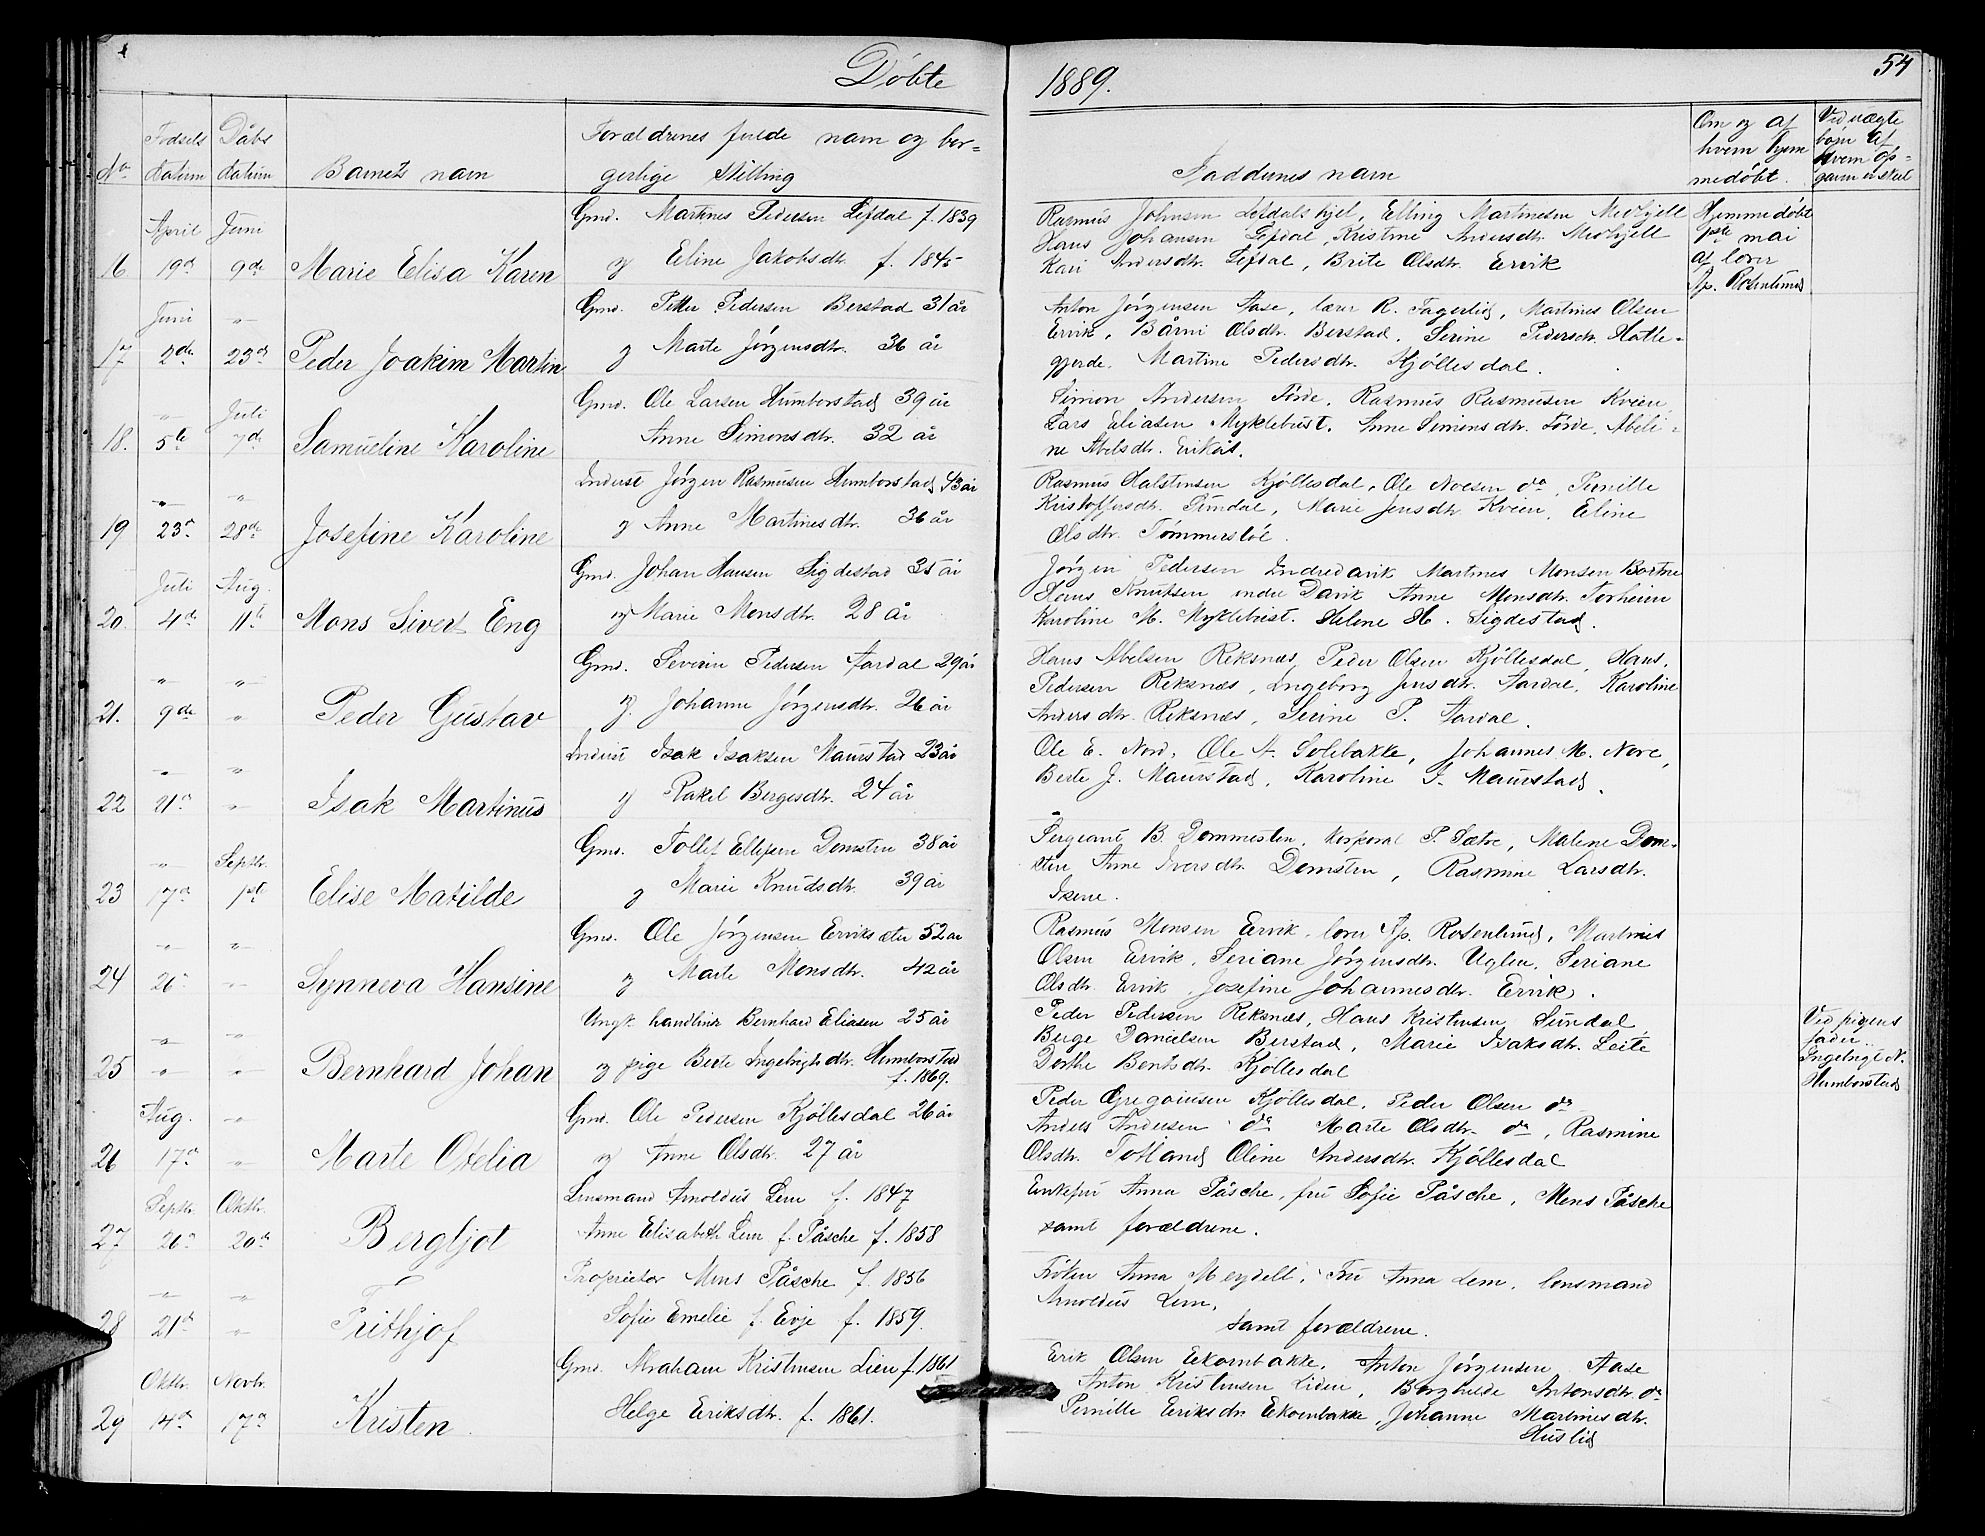 Døbte 1889. 54
No Fødsels datum Dåbs datum Barnets navn Forældrenes fulde navn og borgerlige Stilling Faddernes navn Om og af hvem hjemmedøbt. Ved uægte børn af hvem opgaven er sket
16 April 19d Juni 9de Marie Elisa Karen
Gmd. Martines Pedersen Lefdal f. 1839
og Eline Jakobsdtr. f. 1845
Rasmus Johnsen Lefdalshjel, Elling Martinesen Medhjell
Hans Johansen Lefdal, Kristine Andersdtr. Medhjell
Kari Andersdtr. Lefdal, Brite Olsdtr. Ervik
Hjemmedøbt
1ste mai
af lærer
Ap. Rosenlund
17 Juni 2de " 23de Peder Joakim Martin
Gmd. Petter Pedersen Berstad 31 år
og Marte Jørgensdtr. 36 år
Anton Jørgensen Aase, lærer R. Fagerlid, Martines Olsen
Ervik, Bårni Olsdtr. Berstad, Serine Pedersdtr. Hatle-
gjerde, Martine Pedersdtr. Kjøllesdal.
18. " 5te Juli 7de Samueline Karoline
Gmd. Ole Larsen Humborstad 39 år
Anne Simonsdtr. 32 år
Simon Andersen Førde, Rasmus Rasmusen Kveen,
Lars Eliasen Myklebust, Anne Simonsdtr. Førde, Abeli-
ne Abelsdtr. Eikås.
19 " 23d " 28de Josefine Karoline
Inderst Jørgen Rasmusen Humborstad 43 år
og Anne Martinesdtr. 36 år
Rasmus Halstensen Kjøllesdal, Ole Noesen do, Pernille
Kristoffersdtr. Sundal, Marie Jensdtr. Kveen, Eline
Olsdtr. Tømmerstøl.
20. Juli 4de Aug. 11te Mons Sivert Eng
Gmd. Johan Hansen Sigdestad 35 år
og Marie Monsdtr. 28 år
Jørgen Pedersen Indredavik Martines Monsen Bortne
Hans Knutsen indre Davik Anne Monsdtr. Torheim
Karoline M. Myklebust. Helene H. Sigdestad.
21. " 9de " " Peder Gustav
Gmd. Severin Pedersen Aardal 29 år
og Johanne Jørgensdtr. 26 år
Hans Abelsen Reksnæs, Peder Olsen Kjøllesdal, Hans
Pedersen Reksnæs, Ingeborg Jensdtr. Aardal, Karoline
Andersdtr. Reksnæs, Serine P. Aardal.
22 " 21d " " Isak Martinus
Inderst Isak Isaksen Maurstad 23 år
og Rakel Bergesdtr. 24 år
Ole E. Nord, Ole A. Solibakke, Johannes M. Nore,
Berte J. Maurstad, Karoline I. Maurstad.
23 " 17d Septbr. 1ste Elise Matilde
Gmd. Tollef Ellefsen Domsten 38 år
og Marie Knudsdtr. 39 år
Sergeant B. Dommesten, Korporal P. Sætre, Malene Dom-
sten, Anne Iversdtr. Domsten, Rasmine Larsdtr.
Isene.
24 " 26 " " Synneva Hansine
Gmd. Ole Jørgensen Erviksæter 52 år
og Marte Monsdtr. 42 år
Rasmus Monsen Ervik, lærer Ap. Rosenlund, Martines
Olsen Ervik, Seriane Jørgensdtr. Uglen, Seriane
Olsdtr. Ervik, Josefine Johannesdtr. Ervik.
25 " " " " Bernhard Johan
Ungk. handlende Bernhard Eliasen 25 år
og pige Berte Ingebrigtsdtr. Humborstad
f. 1869.
Peder Pedersen Reksnæs, Hans Kristensen Sundal,
Berge Danielsen Berstad, Marie Isaksdtr. Leite
Dorthe Bentsdtr. Kjøllesdal
Ved pigens
fader
Ingebrigt N.
Humborstad
26 Aug. 17d " " Marte Otelia
Gmd. Ole Pedersen Kjøllesdal 26 år
og Anne Olsdtr. 27 år
Peder Gregoriusen Kjøllesdal, Peder Olsen do
Anders Andersen do Marte Olsdtr. do, Rasmine
Olsdtr. Totland, Oline Andersdtr. Kjøllesdal
27 Septbr. 20d Oktbr. 20de Bergljot
Lensmand Arnoldus Lem f. 1847
Anne Elisabeth Lem f. Påsche f. 1858
Enkefru Anna Påsche, fru Sofie Påsche, Mons Påsche
samt forældrene.
28 " 21de " " Frithjof
Proprietær Mons Påsche f. 1856
Sofie Emelie f. Evje f. 1859.
Frøken Anna Meydell, Fru Anna Lem, lensmand
Arnoldus Lem,
samt forældrene.
29 Oktbr. 14de Novbr. 17de Kristen
Gmd. Abraham Kristensen Lien f. 1861
Helge Eriksdtr. f. 1861.
Erik Olsen Eekornbakke, Anton Jørgensen Aase
Anton Kristensen Liden, Borghilde Antonsdtr. do
Pernille Eriksdtr. Eekornbakke, Johanne Martinesdtr.
Huslid